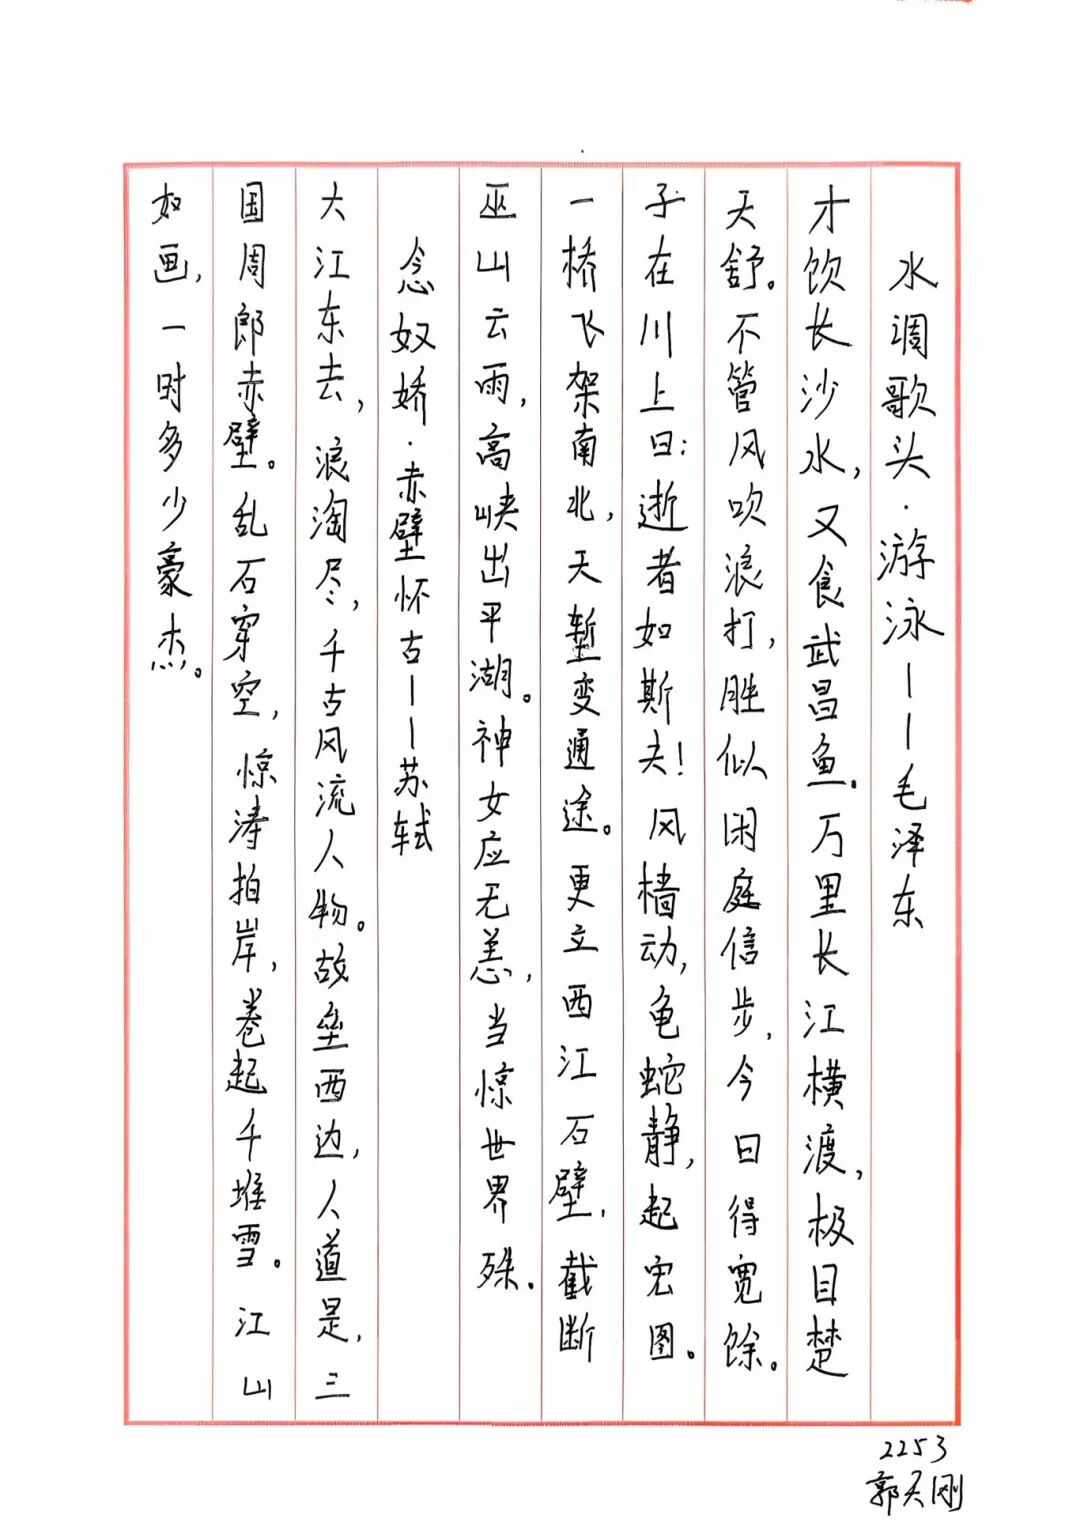 水调歌头·游泳——毛泽东
才饮长沙水，又食武昌鱼。万里长江横渡，极目楚
天舒。不管风吹浪打，胜似闲庭信步，今日得宽馀。
子在川上曰：逝者如斯夫！风樯动，龟蛇静，起宏图。
一桥飞架南北，天堑变通途。更立西江石壁，截断
巫山云雨，高峡出平湖。神女应无恙，当惊世界殊。
念奴娇·赤壁怀古——苏轼
大江东去，浪淘尽，千古风流人物。故垒西边，人道是，三
国周郎赤壁。乱石穿空，惊涛拍岸，卷起千堆雪。江山
如画，一时多少豪杰。
2253